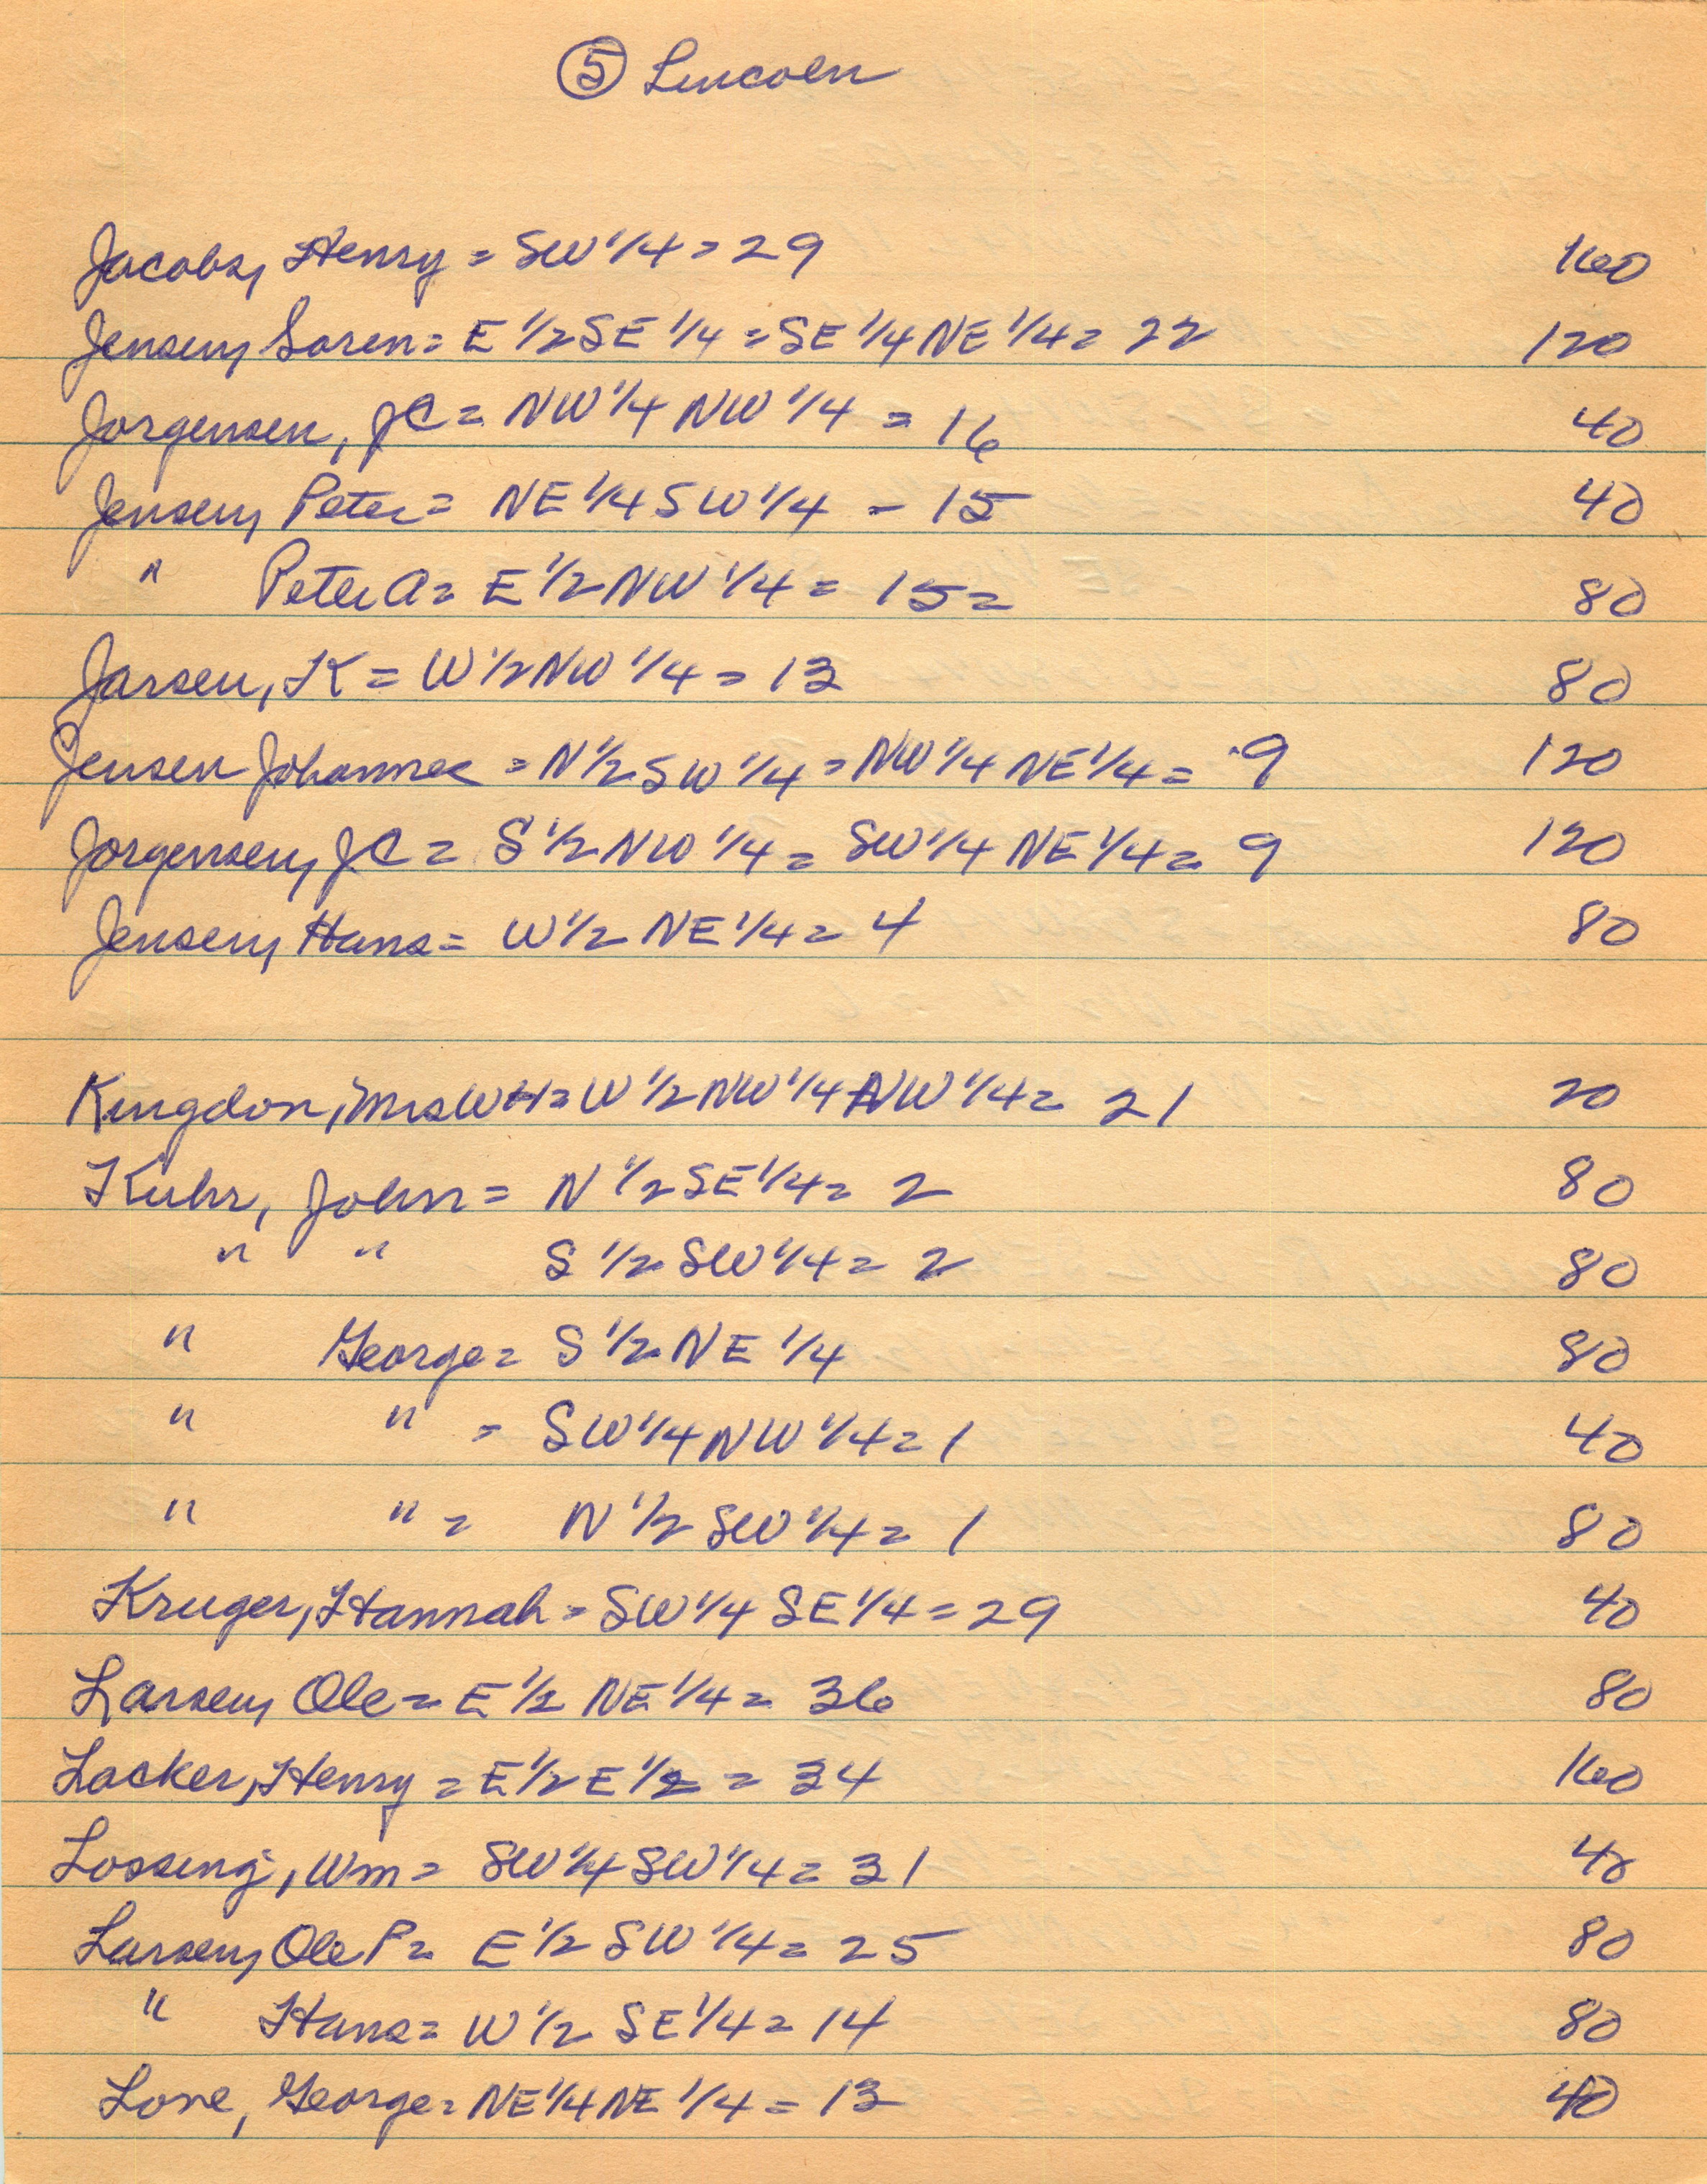 ⑤ Lincoln
Jacobs, Henry = SW 1/4 = 29 160
Jensen, Soren = E 1/2 SE 1/4 = SE 1/4 NE 1/4 = 22 120
Jorgensen, JC = NW 1/4 NW 1/4 = 16 40
Jensen, Peter = NE 1/4 SW 1/4 - 15 40
" Peter A = E 1/2 NW 1/4 = 15 = 80
Jarsen, K = W 1/2 NW 1/4 = 13 80
Jensen Johannes = N 1/2 SW 1/4 = NW 1/4 NE 1/4 = 9 120
Jorgensen, JC = S 1/2 NW 1/4 = SW 1/4 NE 1/4 = 9 120
Jensen, Hans = W 1/2 NE 1/4 = 4 80
Kingdon, Mrs WH = W 1/2 NW 1/4 NW 1/4 = 21 20
Kuhr, John = N 1/2 SE 1/4 = 2 80
" " S 1/2 SW 1/4 = 2 80
" George = S 1/2 NE 1/4 80
" " = SW 1/4 NW 1/4 = 1 40
" " = N 1/2 SW 1/4 = 1 80
Kruger, Hannah = SW 1/4 SE 1/4 = 29 40
Larsen, Ole = E 1/2 NE 1/4 = 36 80
Locker, Henry = E 1/2 E 1/2 = 34 160
Lossing, Wm = SW 1/4 SW 1/4 = 31 40
Larsen, Ole P = E 1/2 SW 1/4 = 25 80
" Hans = W 1/2 SE 1/4 = 14 80
Lone, George = NE 1/4 NE 1/4 = 13 40